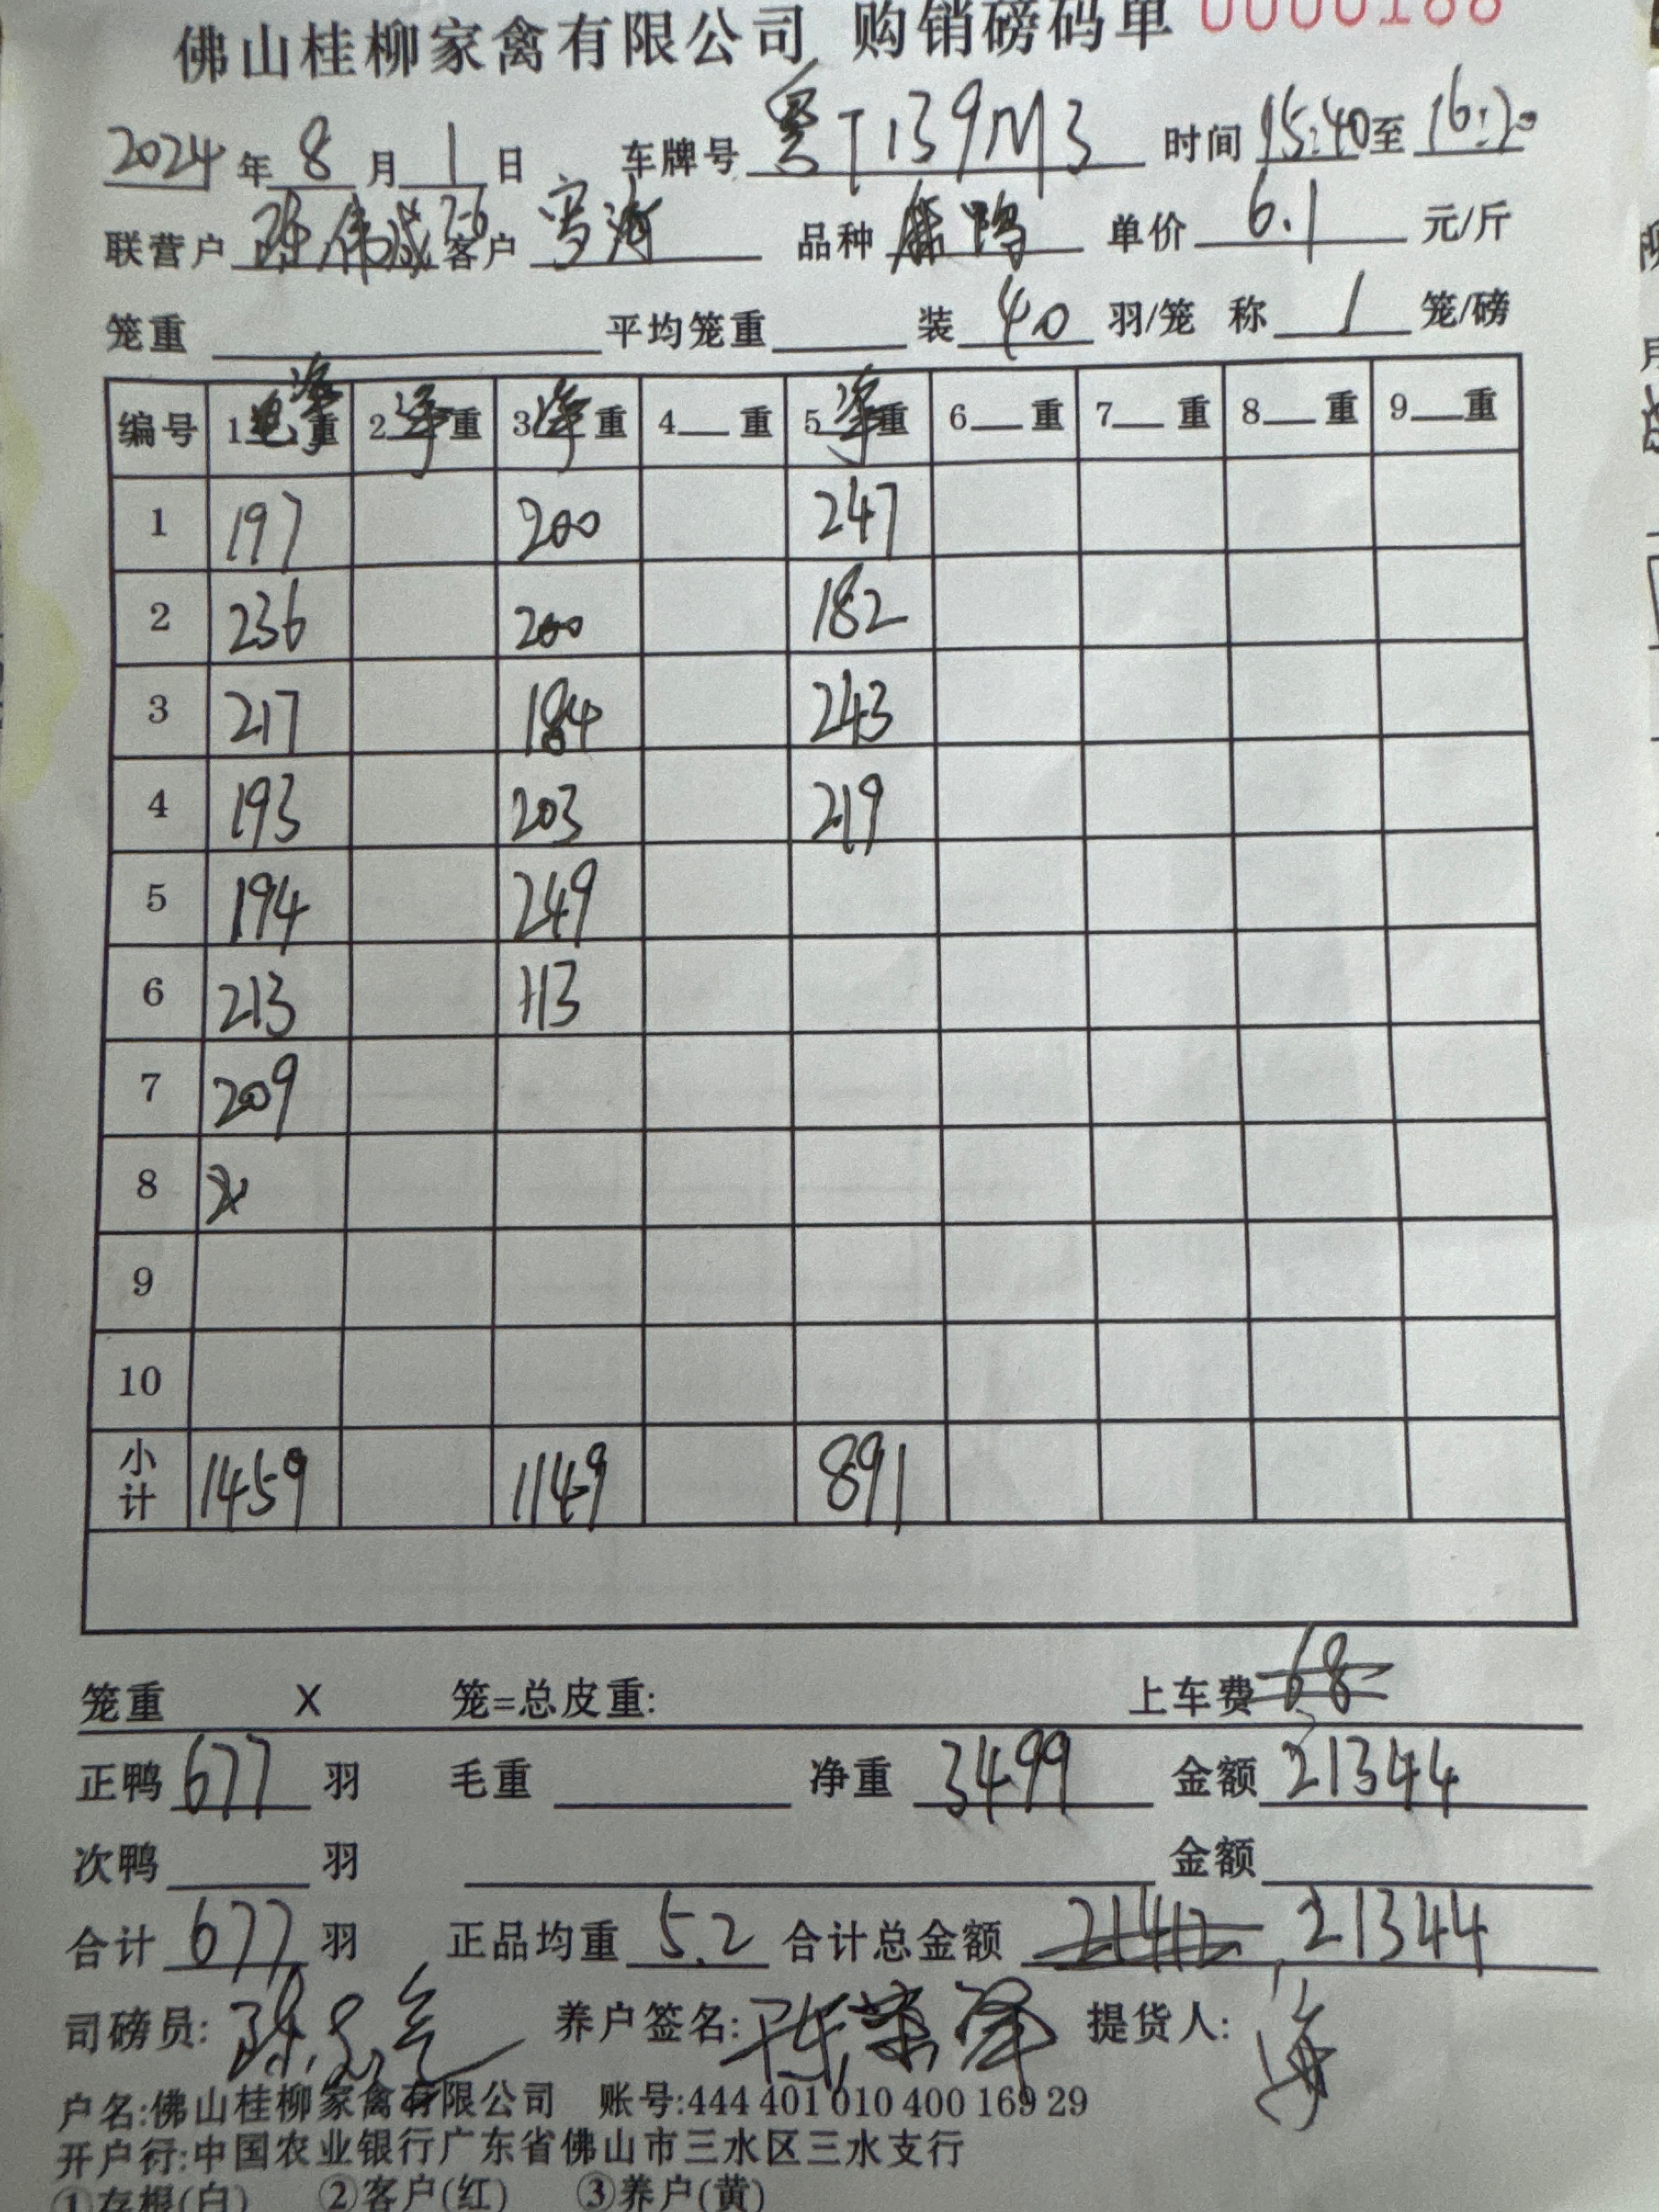 佛山桂柳家禽有限公司 购销磅码单 0000188
2024年8月1日 车牌号 粤T139M3 时间 15:40至16:20
联营户 陈伟成7-6 客户 品种 单价 6.1 元/斤
笼重 平均笼重 装 40 羽/笼 称 1 笼/磅
编号 1 净重 2净重 3净重 4重 5净重 6重 7重 8重 9重
1 197 200 247
2 236 200 182
3 217 184 243
4 193 203 219
5 194 249
6 213 113
7 209
8
9
10
小计 1459 1149 891
笼重 X 笼=总皮重: 上车费 68
正鸭 677 羽 毛重 净重 3499 金额 21344
次鸭 羽 金额
合计 677 羽 正品均重 5.2 合计总金额 21412 21344
司磅员: 养户签名: 提货人: 海
户名:佛山桂柳家禽有限公司 账号:444 401 010 400 169 29
开户行:中国农业银行广东省佛山市三水区三水支行
①存根(白) ②客户(红) ③养户(黄)